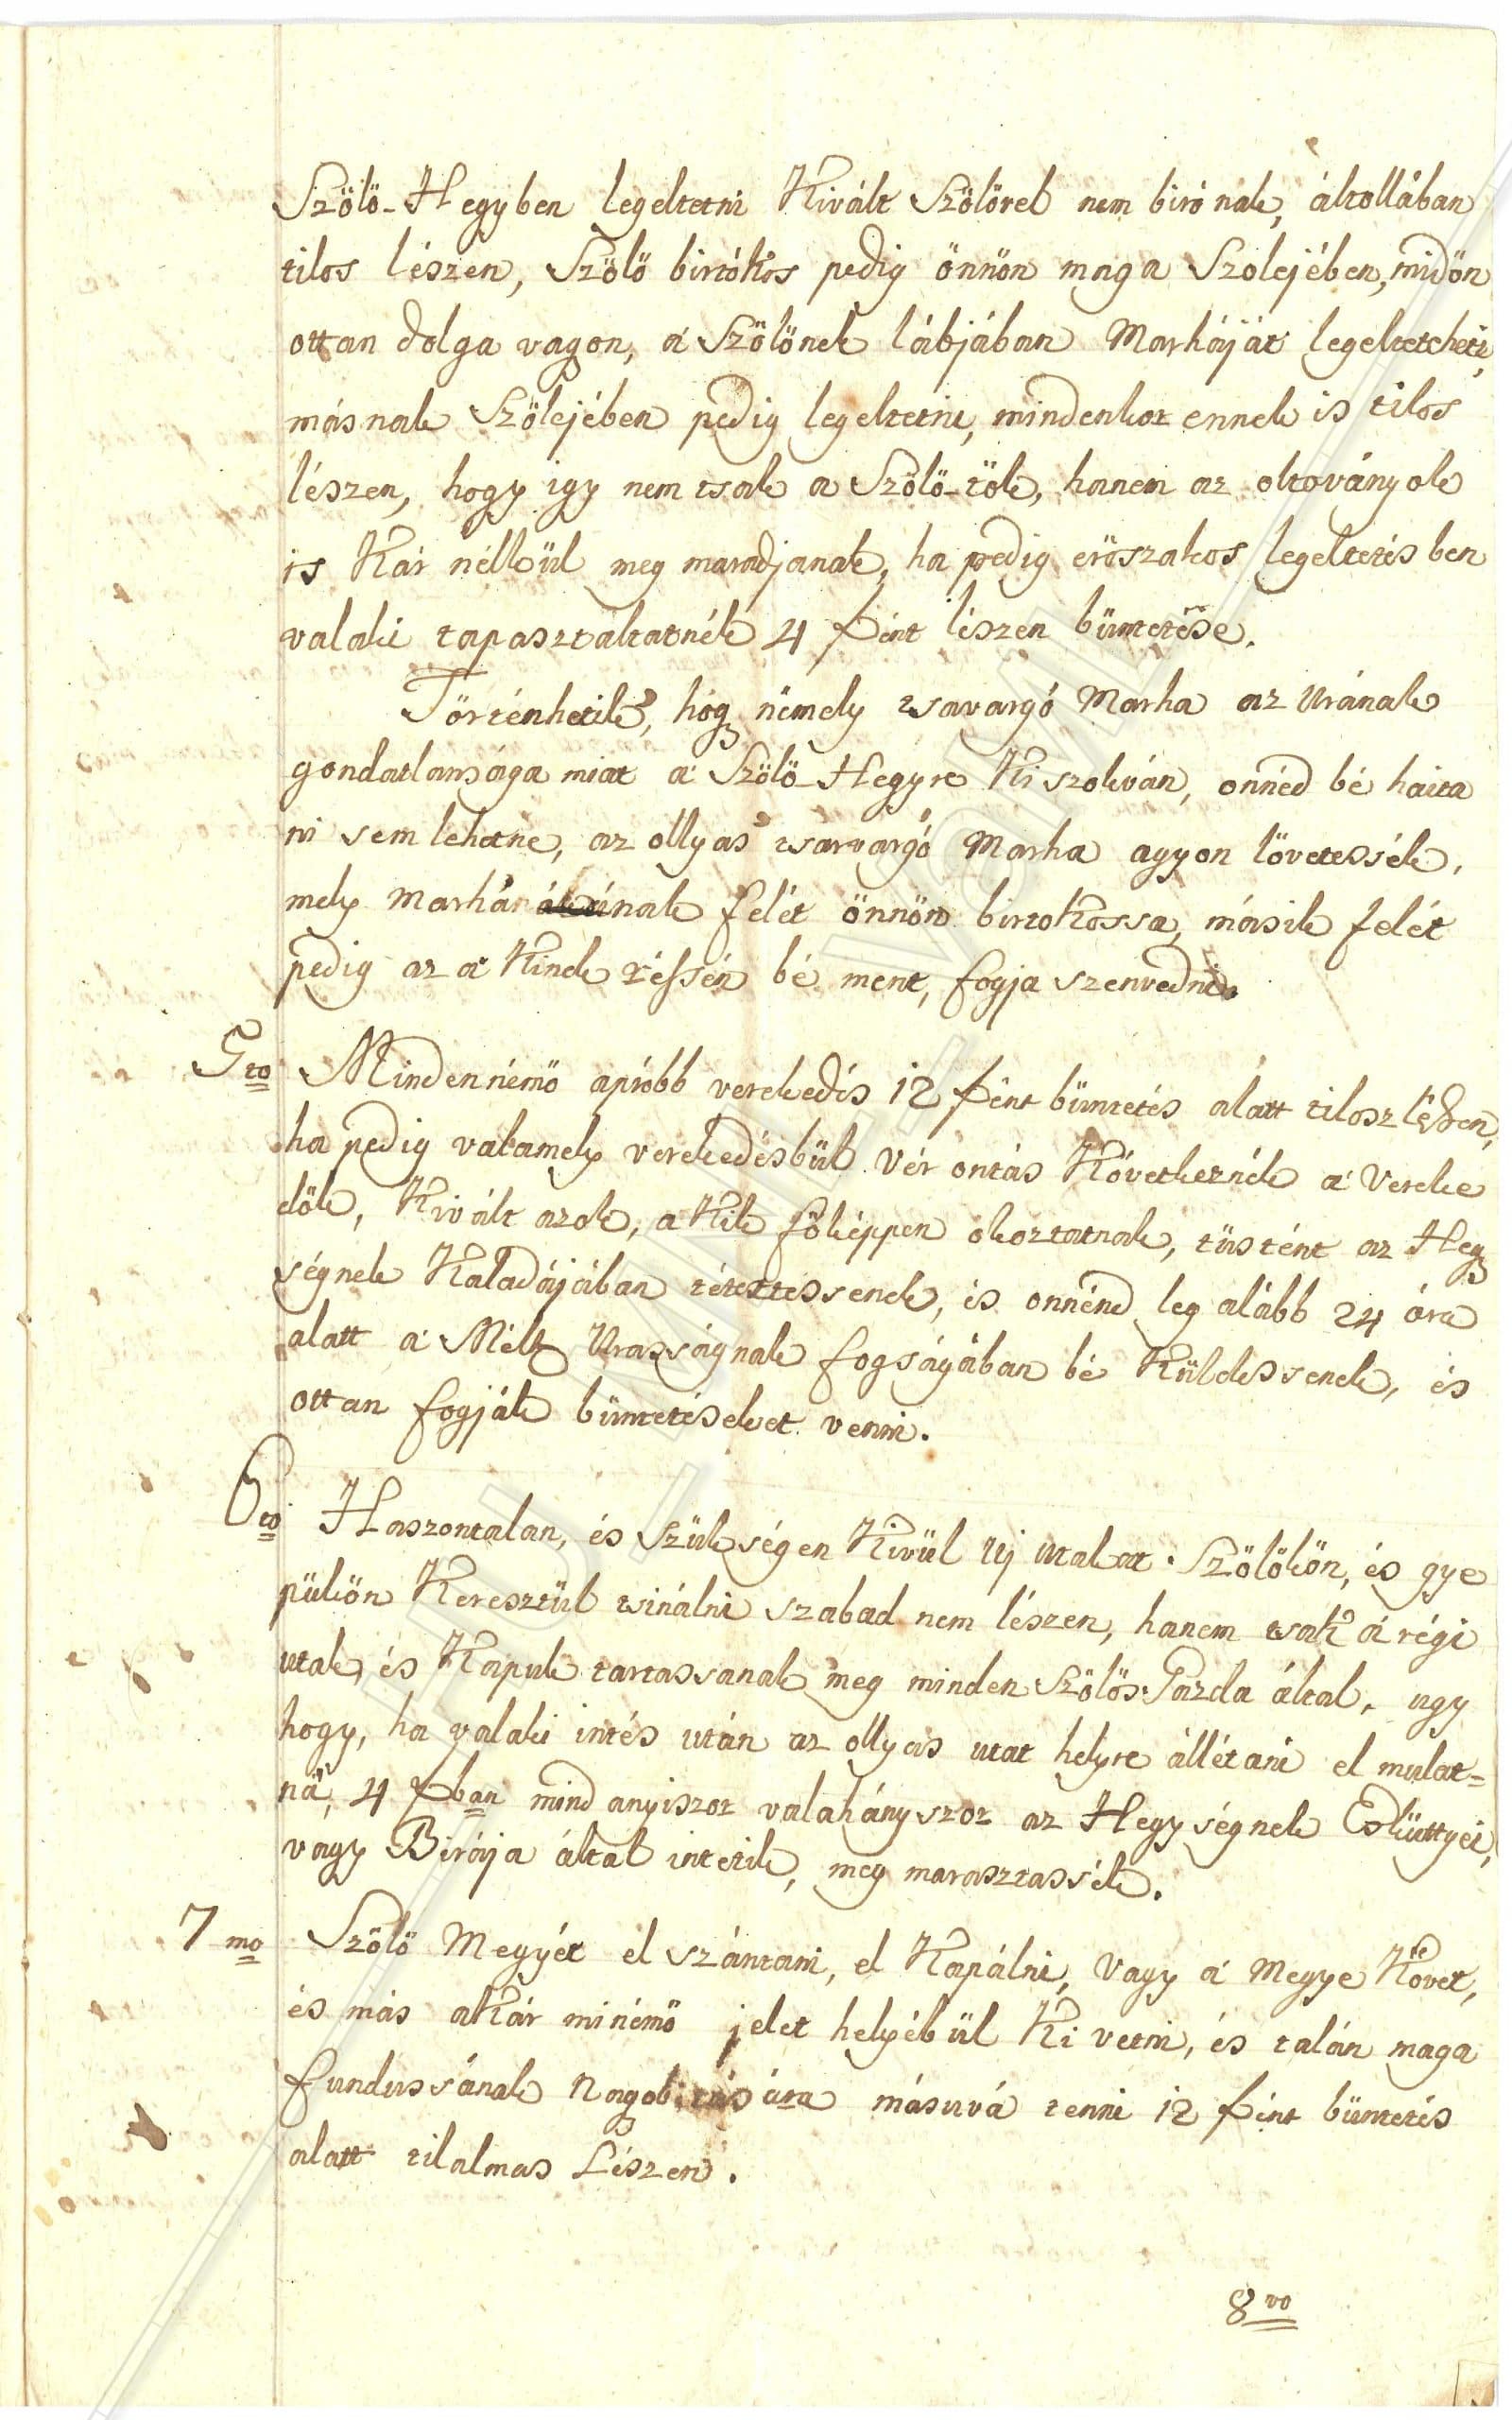 Szölö-Hegyben legeltetni Kivált Szölövel nem birónak, áltollában
tilos lészen, Szölö birtókos pedig önnön maga Szolejében, midön
ottan dolga vagon, á Szölönek lábjában Marháját legeltetheti,
másnak Szölejében pedig legeltetni, mindenkor ennek is tilos
lészen, hogy igy nem tsak a Szölö-tök, hanem az oltoványok
is Kár nélkül meg maradjanak, ha pedig eröszakos legeltetésben
valaki tapasztaltatnék 4 fként lészen büntetése.
Történhetik, hog némely tsavargó Marha az Urának
gondatlansága miat á Szölö-Hegyre Ki szokván, onnéd bé haita
ni sem lehetne, az ollyas tsarvargó Marha agyon lövetessék,
mely Marhának felét önnön birtokossa, másik felét
pedig az á Kinek réssén bé ment, fogja szenvedni.
5to Mindennémö apróbb verekedés 12 fként büntetés alatt tilosz lészen,
ha pedig valamely verekedésbül Vér ontás Következnék á Vereke
dök, Kivált azok, a Kik föképpen okoztatnak, tüstént az Heg
ségnek Kaladájában tétettessenek, és onnénd leg alább 24 óra
alatt á Mélt Uraságnak fogságában bé Küldessenek, és
ottan fogják büntetéseket venni.
6to Haszontalan, és Szükségen Kivül Uj utakat Szölökön, és gye
pükön Keresztül tsinálni szabad nem lészen, hanem tsak á régi
utak, és Kapuk tartassanak meg minden Szölös Gazda által, ugy
hogy, ha valaki intés után az ollyas utat helyre állétani el mulat=
ná, 4 fban mind anyiszor valahányszor az Hegységnek Esküttyei,
vagy Birája által intetik, meg marasztassék.
7mo Szölö Megyét el szántani, el Kapálni, Vagy á Megye Kövét,
és más aKár minémö jelet helyébül Ki vetni, és talán maga
fundussának Nagobitására másuvá tenni 12 fként büntetés
alatt tilalmas Lészen.
8vo